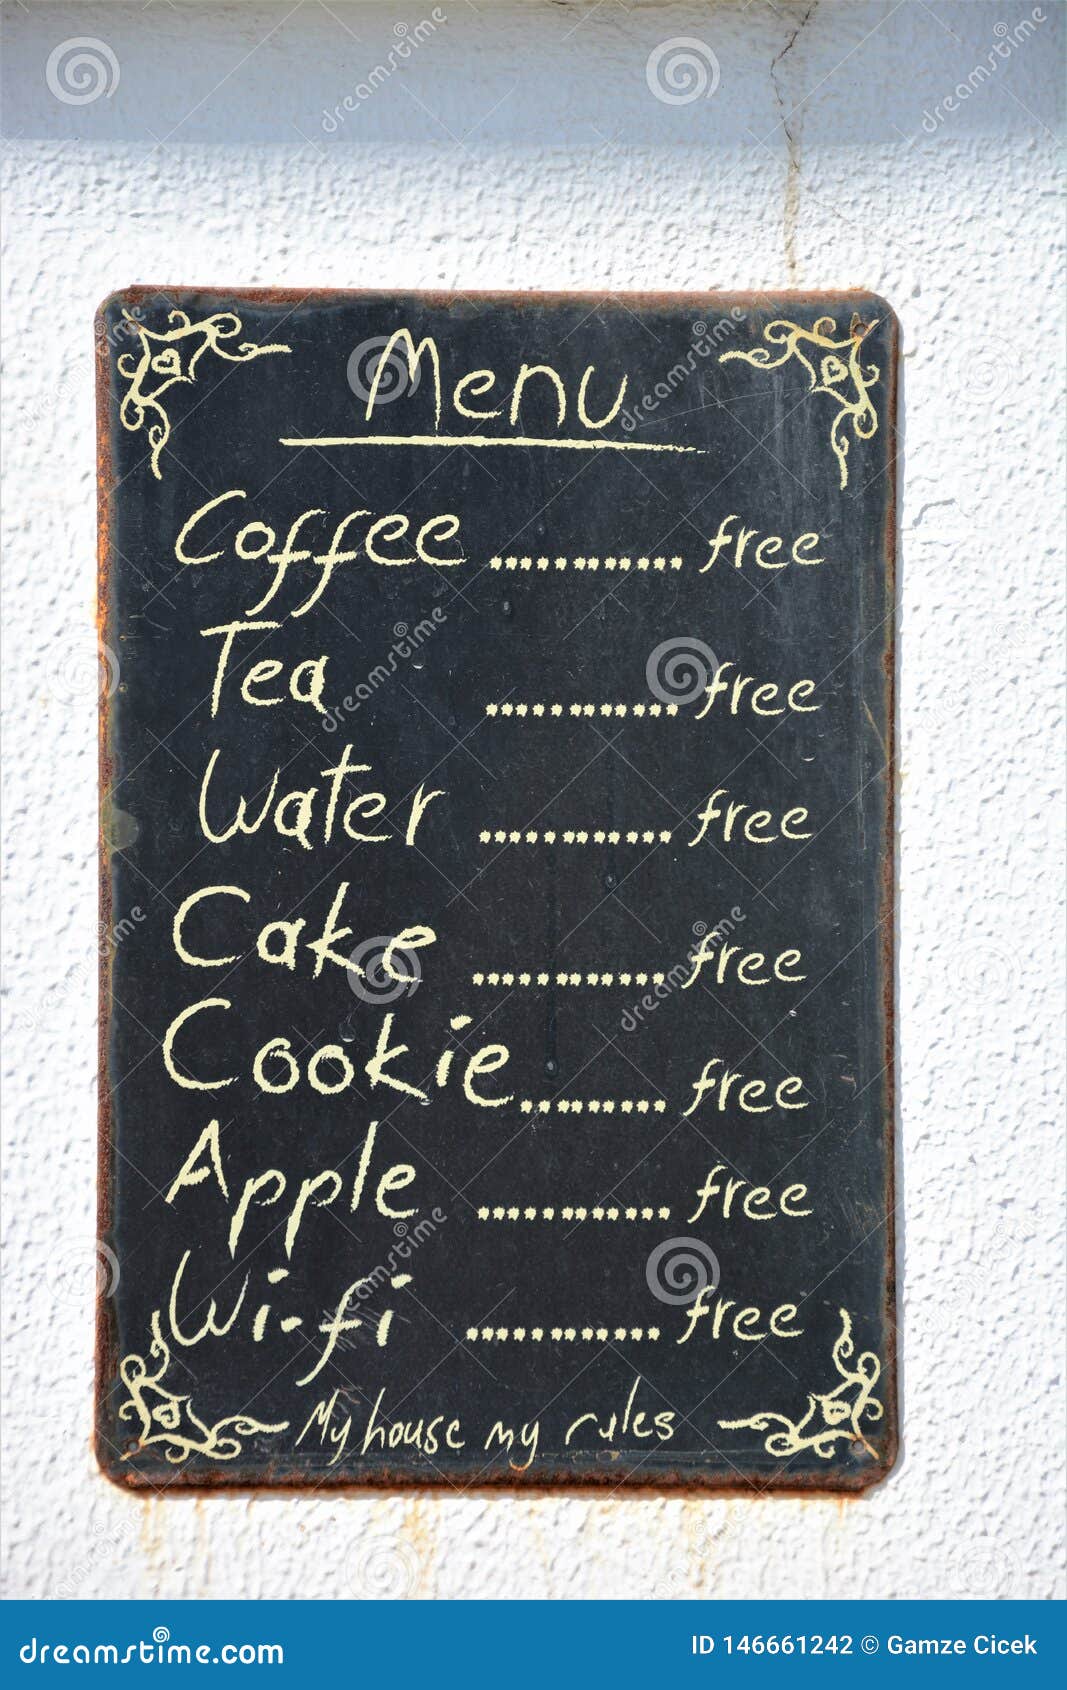 Menu
Coffee ............ free
Tea ............ free
Water ............ free
Cake ............ free
Cookie ......... free
Apple ............ free
Wi-fi ............ free
My house my rules
dreamstime.com
ID 146661242 © Gamze Cicek